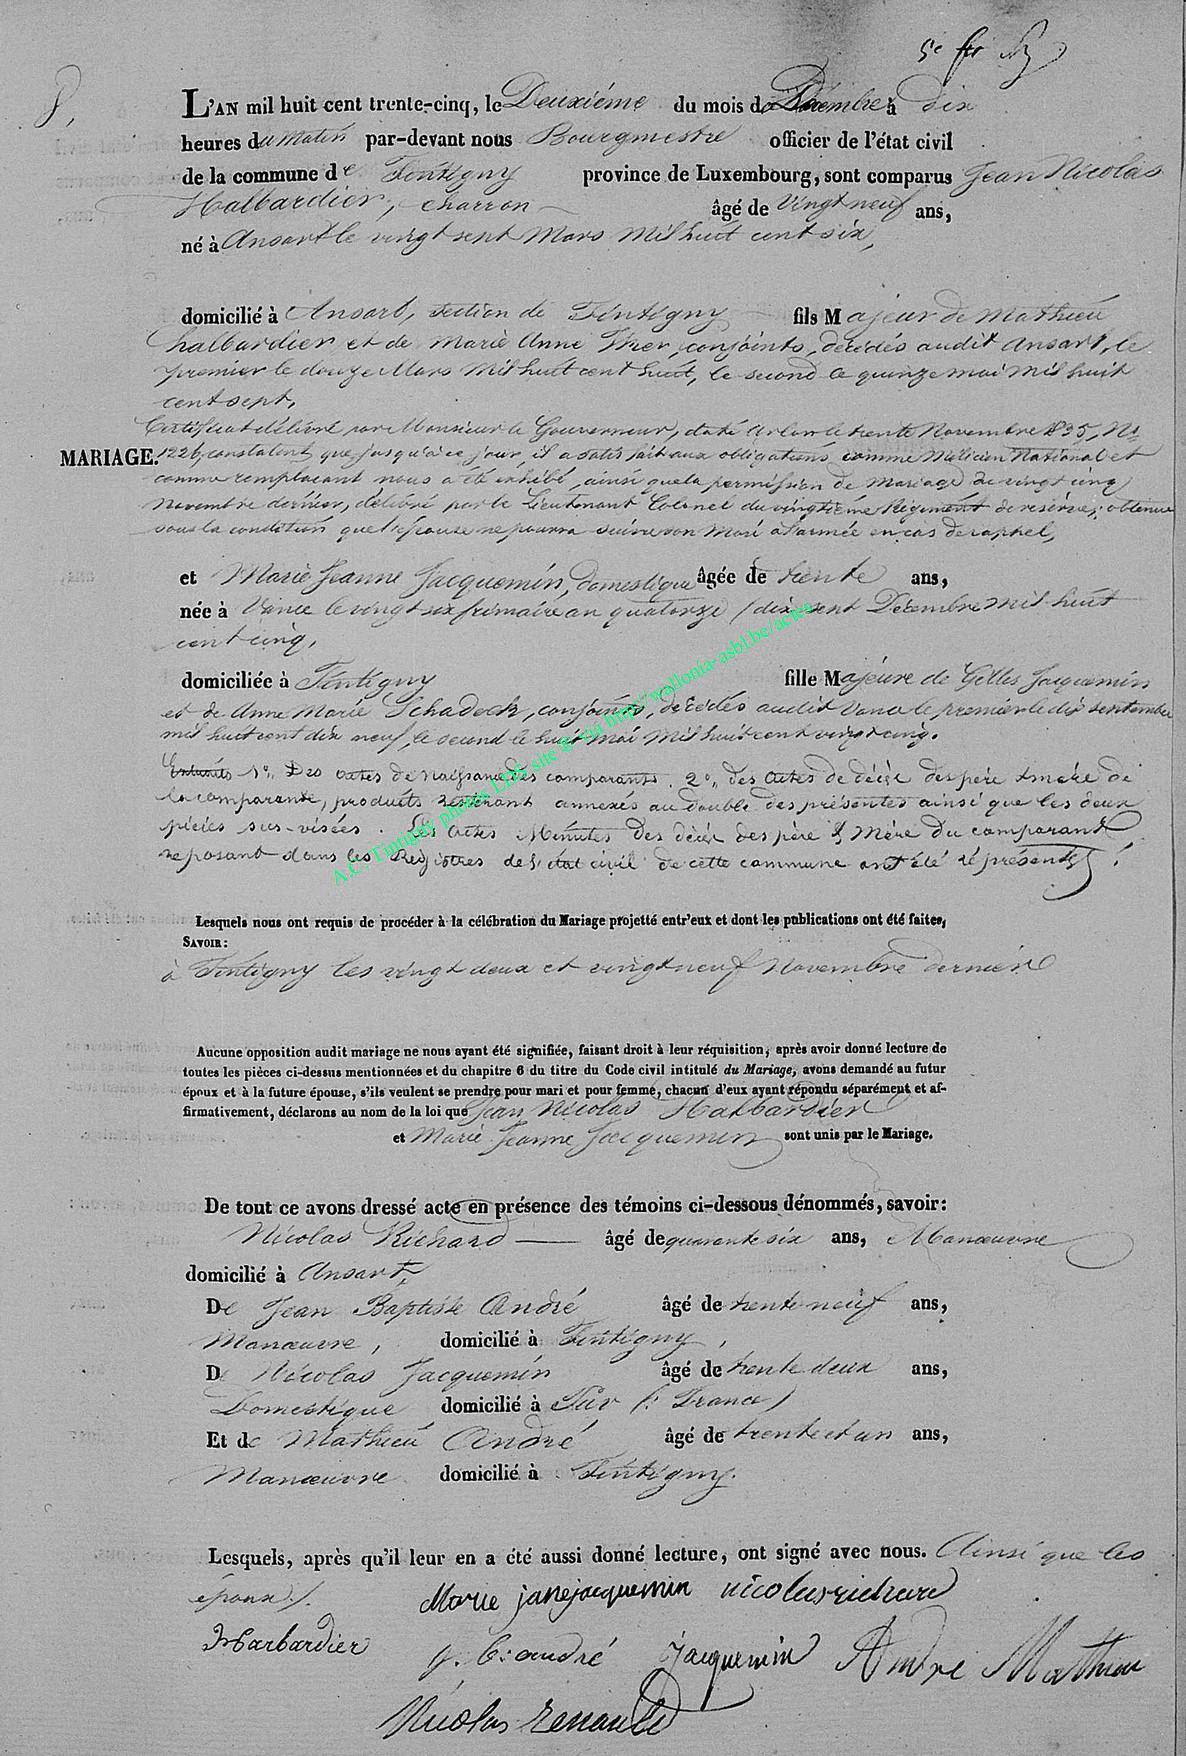 8,
L'AN mil huit cent trente-cinq, le Deuxiéme du mois de Décembre à dix
heures du matin par-devant nous Bourgmestre officier de l'état civil
de la commune de Tintigny province de Luxembourg, sont comparus Jean Nicolas
Halbardier, charron âgé de Vingt neuf ans,
né à Ansart le vingt sept Mars mil huit cent six,
domicilié à Ansart, section de Tintigny fils Majeur de Mathieu
halbardier et de Marie Anne Ther, conjoints, décédés audit Ansart, le
premier le douze Mars mil huit cent huit, le second le quinze mai mil huit
cent sept,
Certificat délivré par Monsieur le Gouverneur, daté Arlon le trente Novembre 1835, No
MARIAGE.
1226, constatant que jusqu'à ce jour, il a satisfait aux obligations comme Milicien National et
comme remplacant nous a été exhibé, ainsi que la permission de mariage du vingt cinq
Novembre dernier, délivré par le Lieutenant Colonel du vingtième Régiment de réserve, obtenue
sous la condition que l'épouse ne pourra suivre son Mari à l'armée en cas de raphel,
et Marie Jeanne Jacquemin, domestique âgée de trente ans,
née à Vance le vingt six frimaire an quatorze / dix sept Décembre mil huit
cent cinq,
domiciliée à Tintigny fille Majeure de Gilles Jacquemin
et de Anne Marie Schadeck, conjoints, décédés audit Vance le premier le dix septembre
mil huit cent dix neuf, le second le huit Mai Mil huit cent vingt cinq.
Extraits 1o. Des actes de Naissance des comparants. 2o, des actes de décès des père & mère de
la comparante, produits resteront annexés au double des présentes ainsi que les deux
pièces sus-visées. Les actes Minutes des décès des père & Mère du comparant
reposant dans les Registres de l'état civil de cette commune ont été représentés !
Lesquels nous ont requis de procéder à la célébration du Mariage projetté entr'eux et dont les publications ont été faites,
SAVOIR:
à Tintigny les vingt deux et vingt neuf Novembre dernier
Aucune opposition audit mariage ne nous ayant été signifiée, faisant droit à leur réquisition, après avoir donné lecture de
toutes les pièces ci-dessus mentionnées et du chapitre 6 du titre du Code civil intitulé du Mariage, avons demandé au futur
époux et à la future épouse, s'ils veulent se prendre pour mari et pour femme, chacun d'eux ayant répondu séparément et af-
firmativement, déclarons au nom de la loi que Jean Nicolas Halbardier
et Marie Jeanne Jacquemin sont unis par le Mariage.
De tout ce avons dressé acte en présence des témoins ci-dessous dénommés, savoir:
Nicolas Richard âgé de quarante six ans, Manœuvre
domicilié à Ansart,
De Jean Baptiste André âgé de trente neuf ans,
Manœuvre, domicilié à Tintigny,
De Nicolas Jacquemin âgé de trente deux ans,
Domestique domicilié à (: France)
Et de Mathieu André âgé de trente et un ans,
Manœuvre domicilié à Tintigny.
Lesquels, après qu'il leur en a été aussi donné lecture, ont signé avec nous. Ainsi que les
époux /.
Marie jane jacquemin nicolas richard
Harbardier j. b: andré jacquemin André Mathieu
Nicolas Renauld
A.C. Tintigny photos LDS site @ via http://wallonia-asbl.be/actes